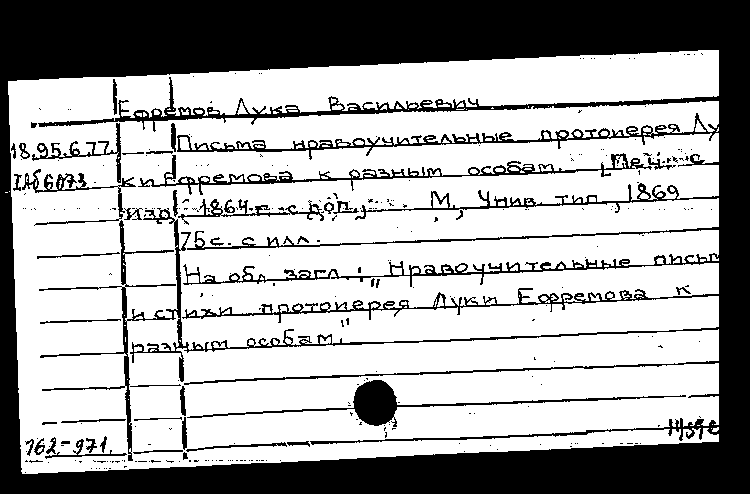 Ефремов, Лука Васильевич
18.95.6.77. Письма нравоучительные протоиерея Лу
ки Ефремова к разным особам. с
изд. 1864 г. с доп. М., Унив. тип., 1869
75 с. с илл.
На обл. загл.: „Нравоучительные письм
и стихи протоиерея Луки Ефремова к
разным особам."
162-971.